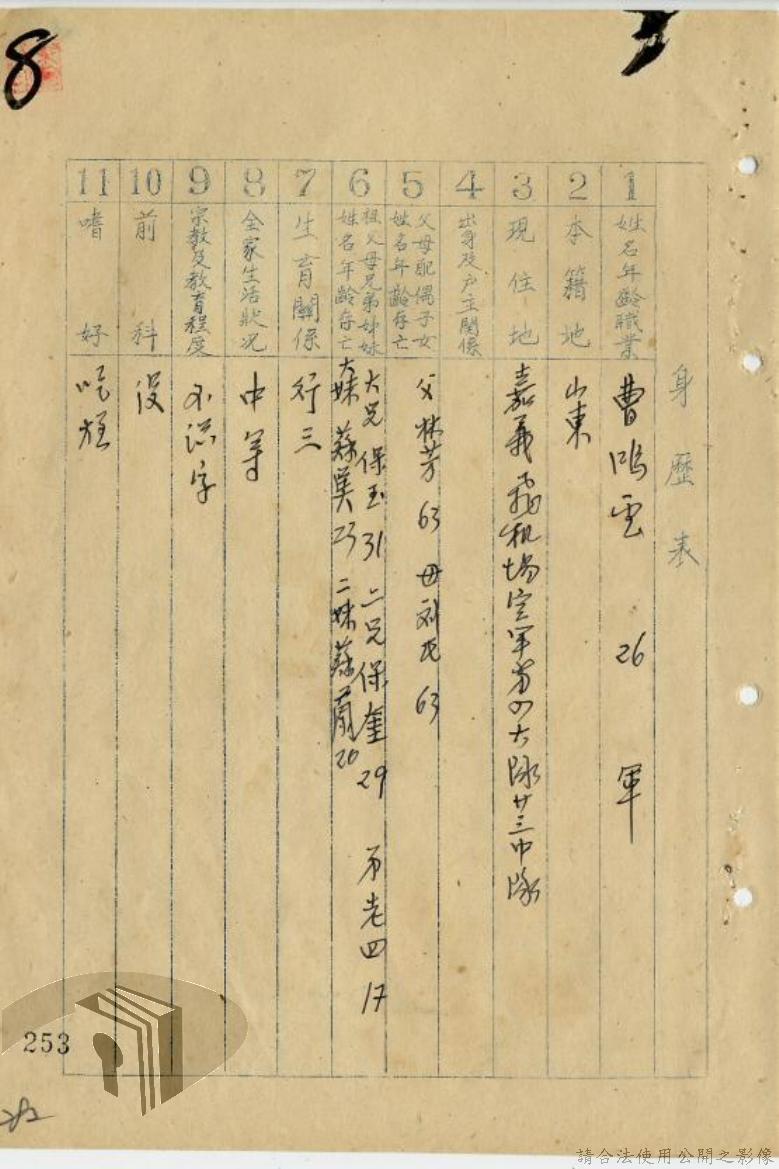 8
身歷表
1 姓名年齡職業 曹鴻雲 26 軍
2 本籍地 山東
3 現住地 嘉義飛机場空軍第四大隊廿三中隊
4 出身及戶主關係
5 父母配偶子女姓名年齡存亡 父林芳 63 母刘氏 63
6 祖父母兄弟姊妹姓名年齡存亡 大兄保玉 31 二兄保奎 29 弟老四 17
大妹蘇英 23 二妹蘇蘭 20
7 生育關係 行三
8 全家生活狀況 中等
9 宗教及教育程度 不識字
10 前科 没
11 嗜好 吃烟
253
請合法使用公開之影像